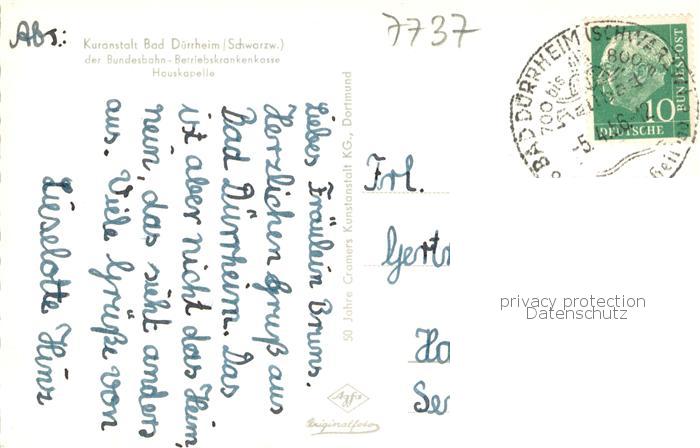 Abs.:
Kuranstalt Bad Dürrheim (Schwarzw.)
der Bundesbahn-Betriebskrankenkasse
Hauskapelle
7737
Liebes Fräulein Bruns.
Herzlichen Gruß aus
Bad Dürrheim. Das
ist aber nicht das Heim,
nein, das sieht anders
aus. Viele Grüße von
Lieselotte Hinz
50 Jahre Cramers Kunstanstalt KG., Dortmund
Agfa
Originalfoto
Frl.
Gertr
Ha
Ser
BAD DÜRRHEIM (SCHWARZ
700 bis 800
10
DEUTSCHE
BUNDESPOST
privacy protection
Datenschutz